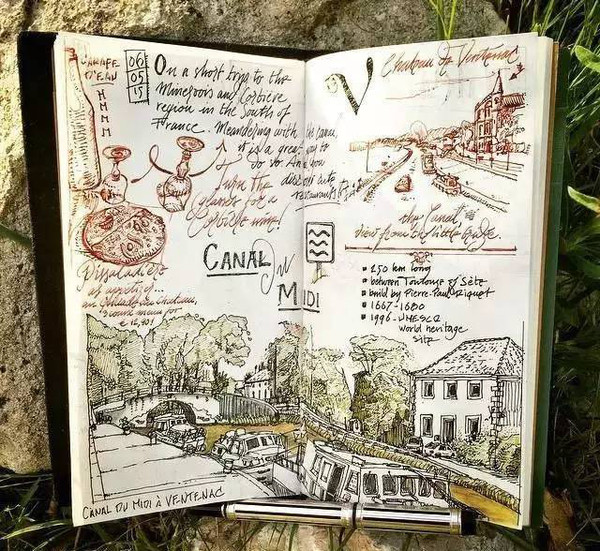 CARAFE
D'EAU
06
05
15
On a short trip to the
Minervois and Corbière
region in the South of
France. Meandering with the canal,
it is a great way to
go to. And you
discover cute
restaurants
turn the
glasses for a
Corbière wine!
Pissaladière
as apéritif...
menu for
€ 12,90!
CANAL
du
MIDI
V
Chateau de Ventenac
the Canal
view from the little bridge.
250 km long
between Toulouse & Sète
build by Pierre-Paul Riquet
1667-1680
1996 - UNESCO
World heritage
site
CANAL DU MIDI À VENTENAC